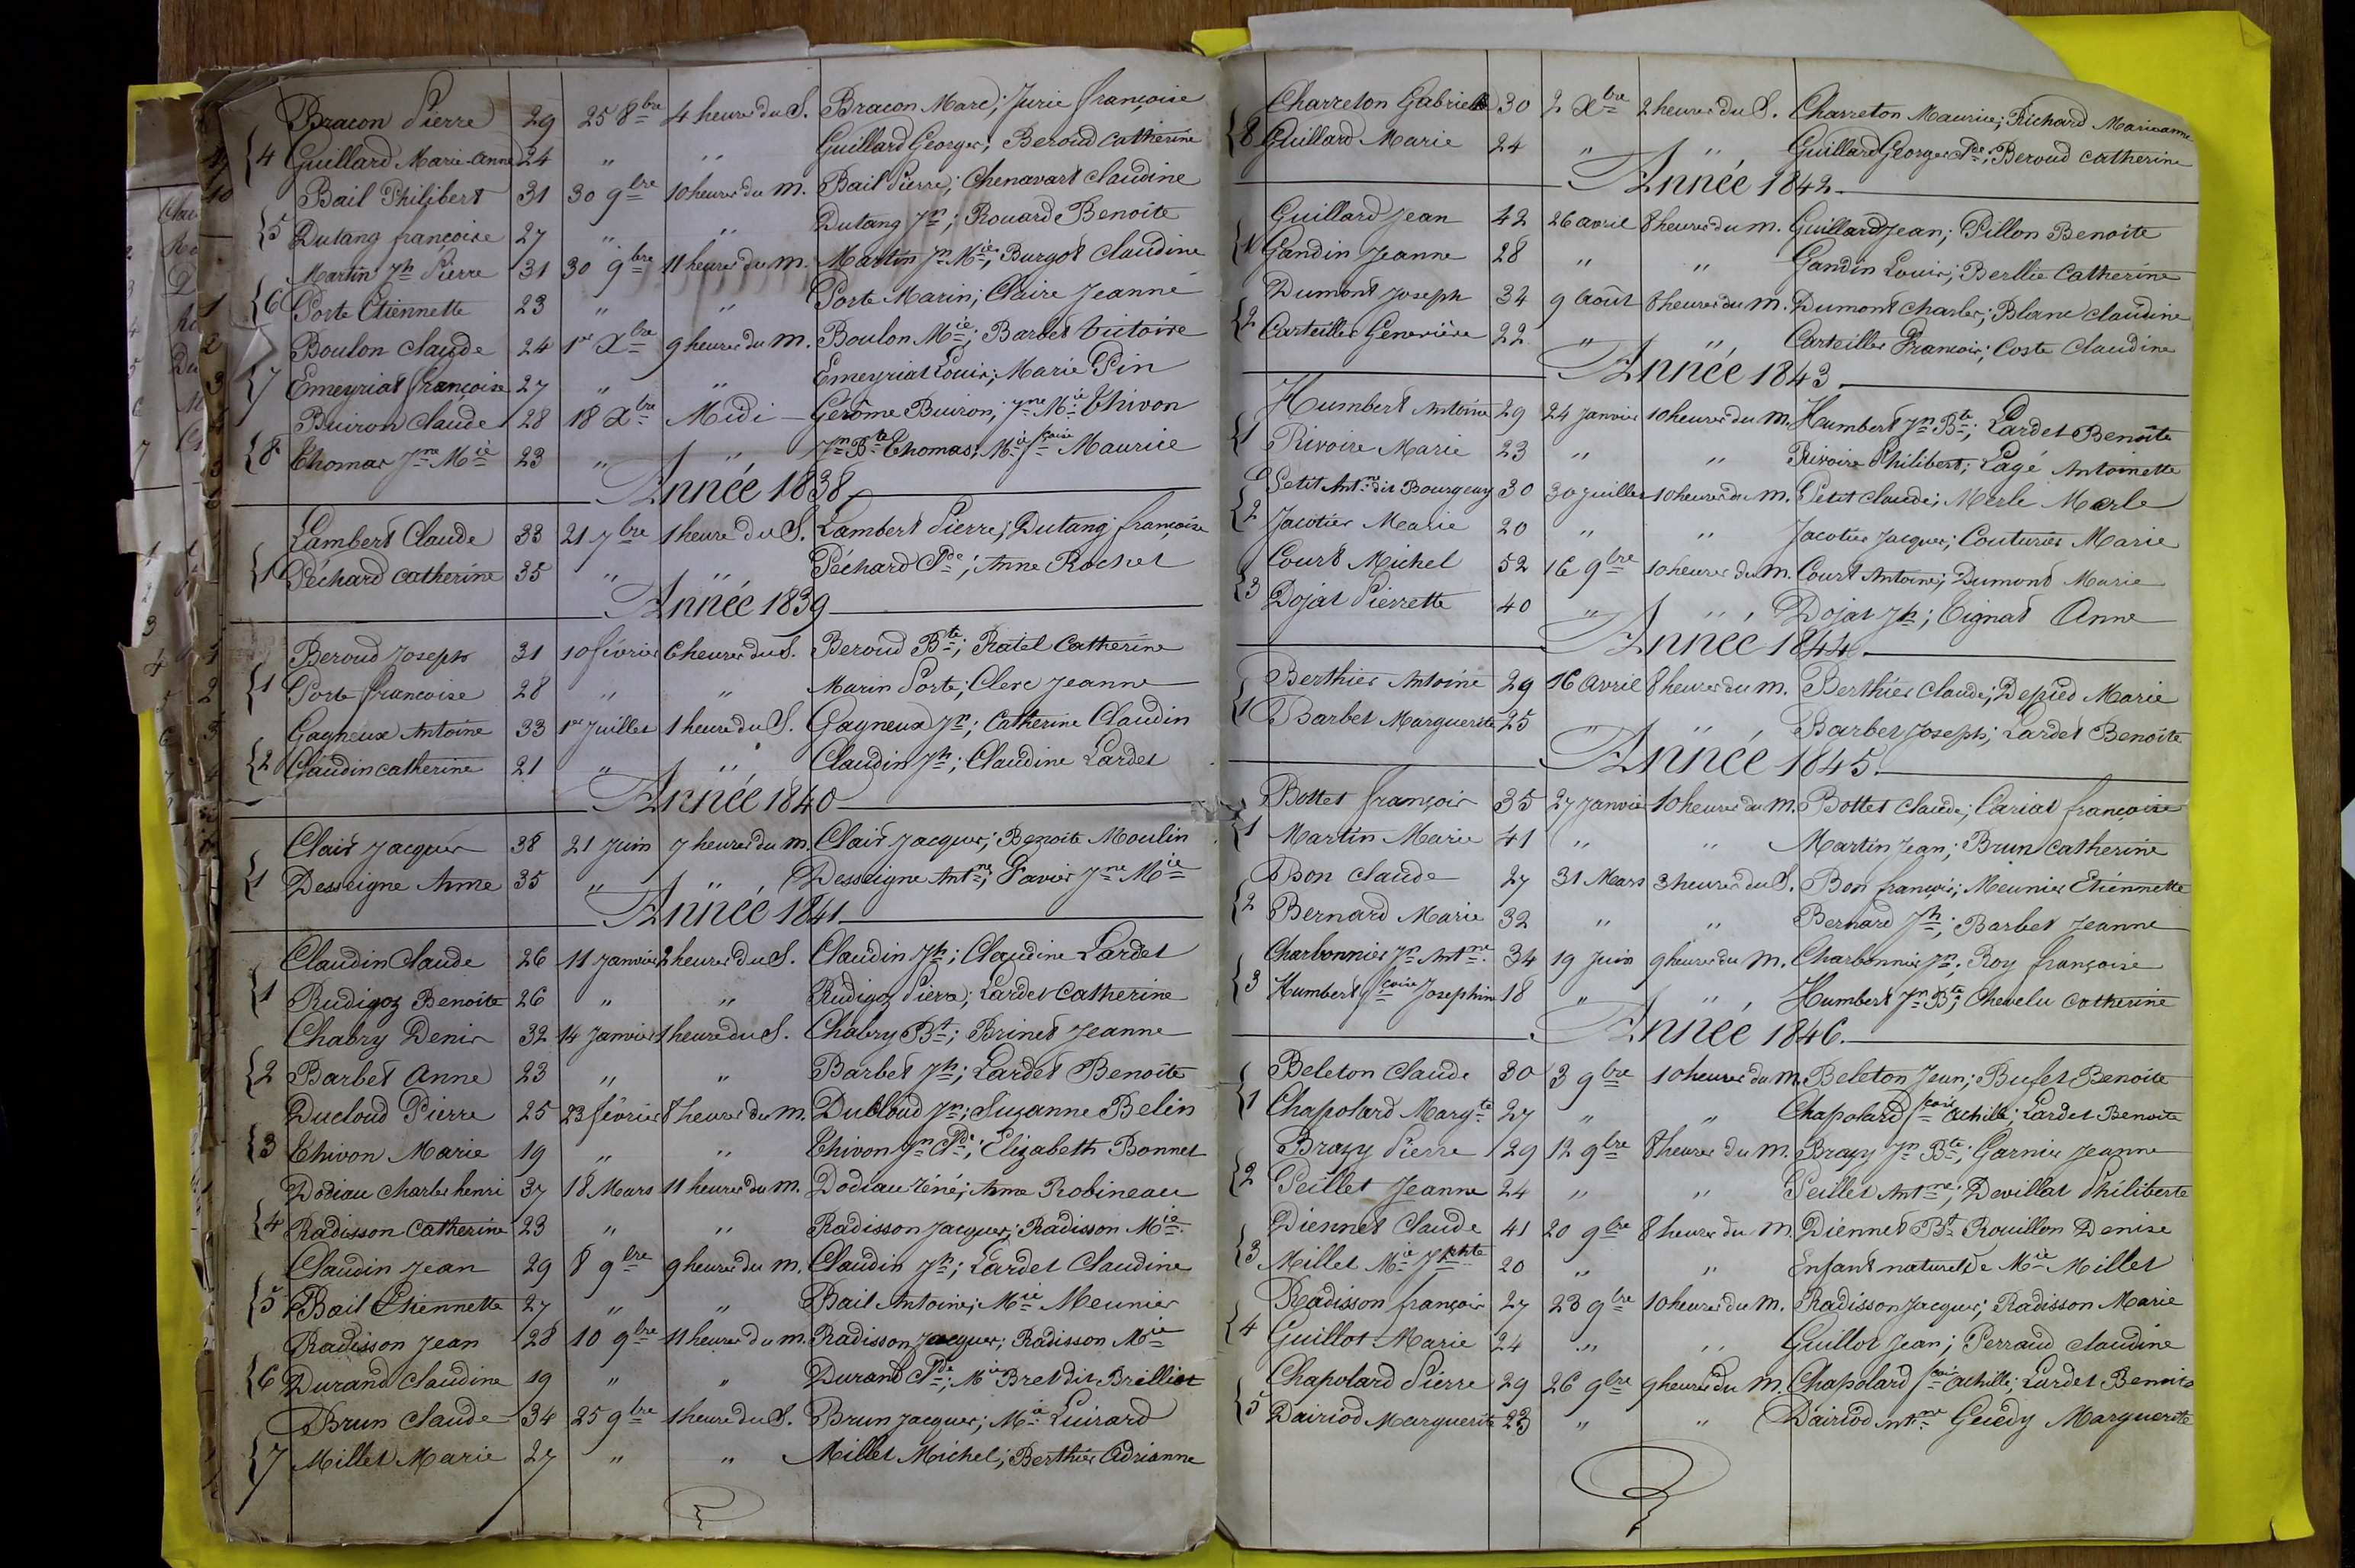 Bracon Pierre 29 25 8bre 4 heures du S. Bracon Marc; Jurie françoise
{4 Guillard Marie-Anne 24 " " Guillard Georges; Beroud Catherine
Bail Philibert 31 30 9bre 10 heures du m. Bail Pierre; Chenavart Claudine
{5 Dutang françoise 27 " " Dutang Jn; Rouard Benoite
Martin Jh Pierre 31 30 9bre 11 heures du m. Martin Jn Mie; Burgot Claudine
{6 Porte Etiennette 23 " " Porte Marin; Claire Jeanne
Boulon Claude 24 1er Xbre 9 heures du m. Boulon Mie; Barbet Victoire
{7 Emeyriat françoise 27 " " Emeyriat Louis; Marie Pin
Buiron Claude 28 18 Xbre Midi Gerôme Buiron; Jne Mie Thivon
{8 Thomas Jne Mie 23 " " Jn Bte Thomas; Mie fçoise Maurice
Année 1838
Lambert Claude 33 21 7bre 1 heure du S. Lambert Pierre; Dutang françoise
{1 Péchard Catherine 35 " " Péchard Cde; Anne Rochet
Année 1839
Beroud Joseph 31 10 février 6 heures du S. Beroud Bte; Ratel Catherine
{1 Porte francoise 28 " " Marin Porte; Clerc Jeanne
Gagneux Antoine 33 1er Juillet 1 heure du S. Gagneux Jn; Catherine Claudin
{2 Claudin catherine 21 " " Claudin Jh; Claudine Lardet
Année 1840
Clair Jacques 38 21 Juin 7 heures du m. Clair Jacques; Benoite Moulin
{1 Desseigne Anne 35 " " Desseigne Antne; Favier Jne Mie
Année 1841
Claudin Claude 26 11 Janvier 2 heures du S. Claudin Jh; Claudine Lardet
{1 Rudigoz Benoite 26 " " Rudigoz Pierre; Lardet Catherine
Chabry Denis 32 14 Janvier 1 heure du S. Chabry Bt; Brinet Jeanne
{2 Barbet Anne 23 " " Barbet Jh; Lardet Benoite
Ducloud Pierre 25 23 février 8 heures du m. Dubloud Jn; Suzanne Belin
{3 Thivon Marie 19 " " Thivon Jn Cde; Elizabeth Bonnet
Dodiau Charles henri 37 18 Mars 11 heures du m. Dodiau Réné; Anne Robineau
{4 Radisson Catherine 23 " " Radisson Jacques; Radisson Mie
Claudin Jean 29 8 9bre 9 heures du m. Claudin Jh; Lardet Claudine
{5 Bail Etiennette 27 " " Bail Antoine; Mie Meunier
Radisson Jean 28 10 9bre 11 heures du m. Radisson Jacques; Radisson Mie
{6 Durand Claudine 19 " " Durand Cde; Mie Bret dit Brilliet
Brun Claude 34 25 9bre 1 heure du S. Brun Jacques; Mie Luirard
{7 Millet Marie 27 " " Millet Michel; Berthier Adrianne
Charreton Gabriel 30 2 Xbre 2 heures du S. Charreton Maurice; Richard Marieanne
{8 Guillard Marie 24 " " Guillard Georges Cde; Beroud Catherine
Année 1842
Guillard Jean 42 26 avril 8 heures du m. Guillard Jean; Pillon Benoite
{1 Gandin Jeanne 28 " " Gandin Louis; Berllie Catherine
Dumont Joseph 34 9 Août 8 heures du m. Dumont Charles; Blanc Claudine
{2 Carteiller Geneviève 22 " " Carteiller François; Coste Claudine
Année 1843
Humbert Antoine 29 24 Janvier 10 heures du m. Humbert Jn Bte; Lardet Benoite
{1 Rivoire Marie 23 " " Rivoire Philibert; Lagé Antoinette
Petit Antne dit Bourgeay 30 30 Juillet 10 heures du m. Petit Claude; Merle Marle
{2 Jacotier Marie 20 " " Jacotier Jacques; Couturier Marie
Court Michel 52 16 9bre 10 heures du m. Court Antoine; Dumont Marie
{3 Dojat Pierrette 40 " " Dojat Jh; Tignat Anne
Année 1844
Berthier Antoine 29 16 Avril 8 heures du m. Berthier Claude; Depied Marie
{1 Barbet Marguerite 25 " " Barbet Joseph; Lardet Benoite
Année 1845
Bottet françois 35 27 Janvier 10 heures du m. Bottet Claude; Cariat françoise
{1 Martin Marie 41 " " Martin Jean; Brun Catherine
Bon Claude 27 31 Mars 3 heures du S. Bon françois; Meunier Etiennette
{2 Bernard Marie 32 " " Bernard Jh; Barbet Jeanne
Charbonnier Jn Antne 34 19 Juin 9 heures du m. Charbonnier Jn; Roy françoise
{3 Humbert fçoise Josephine 18 " " Humbert Jn Bte; Chevelu Catherine
Année 1846
Beleton Claude 30 3 9bre 10 heures du m. Beleton Jean; Bufet Benoite
{1 Chapolard Margte 27 " " Chapolard fçois Achille; Lardet Benoite
Brazy Pierre 29 12 9bre 8 heures du m. Brazy Jn Bte; Garnier Jeanne
{2 Peillet Jeanne 24 " " Peillet Antne; Devillat Philiberte
Diennet Claude 41 20 9bre 8 heures du m. Diennet Bt Rouillon Denise
{3 Millet Mie Jphte 20 " " Enfant naturel de Mie Millet
Radisson françois 27 23 9bre 10 heures du m. Radisson Jacques; Radisson Marie
{4 Guillot Marie 24 " " Guillot Jean; Perraud Claudine
Chapolard Pierre 29 26 9bre 9 heures du m. Chapolard fçois Achille; Lardet Benoite
{5 Dairiod Marguerite 23 " " Dairiod Antne Guedy Marguerite